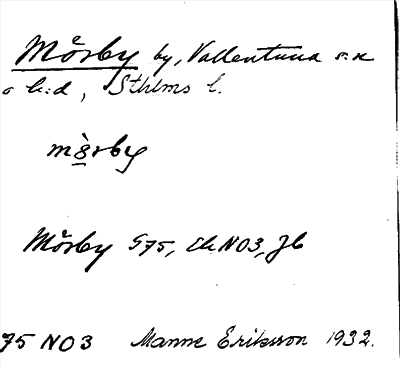 Mörby by, Vallentuna s:n
o h:d, Sthlms l.
mö̀rby
Mörby 975, Ek NO3, Jb
75 NO3 Manne Eriksson 1932.